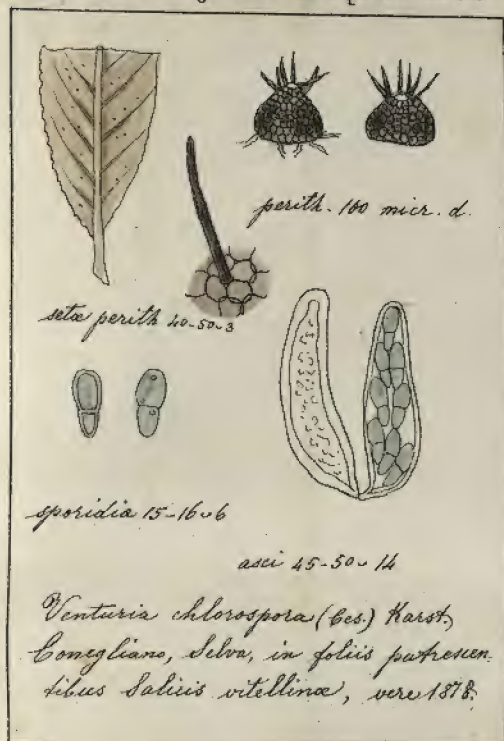 perith. 100 micr. d.
setæ perith 40-50=3
sporidia 15-16=6
asci 45-50=14
Venturia chlorospora (Ces.) Karst,
Conegliano, Selva, in foliis putrescen-
tibus Salicis vitellinæ, vere 1878.